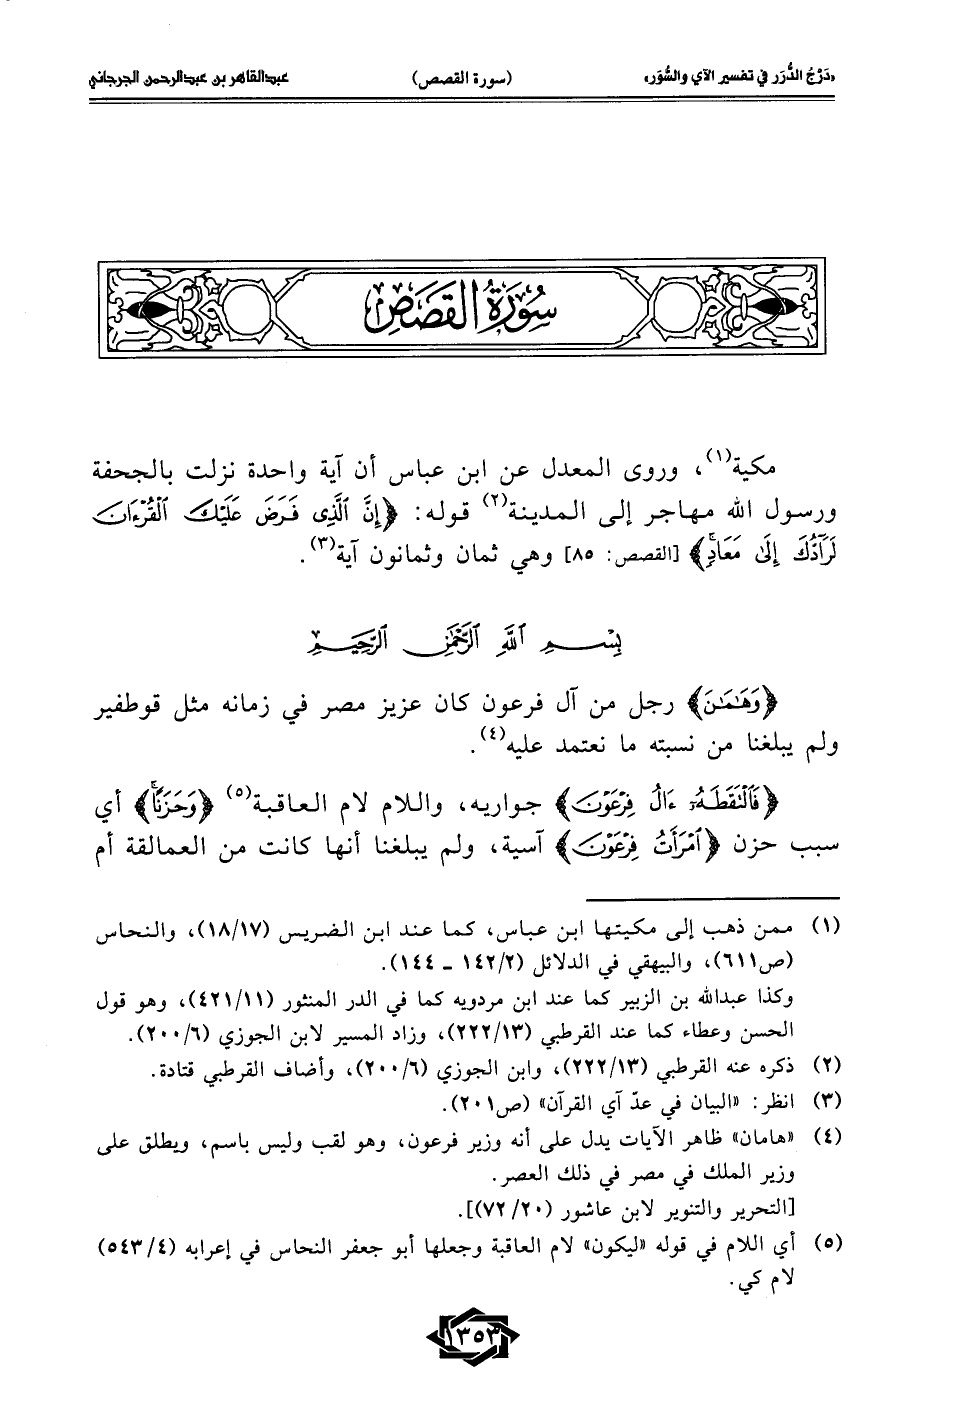 «دَرْجُ الدُّرَر في تفسير الآي والسُّوَر» (سورة القصص) عبدالقاهر بن عبدالرحمن الجرجاني
سُورَةُ القَصَصِ
مكية(١)، وروى المعدل عن ابن عباس أن آية واحدة نزلت بالجحفة
ورسول الله مهاجر إلى المدينة(٢) قوله: ﴿إِنَّ ٱلَّذِى فَرَضَ عَلَيْكَ ٱلْقُرْءَانَ
لَرَآدُّكَ إِلَىٰ مَعَادٍۚ﴾ [القصص: ٨٥] وهي ثمان وثمانون آية(٣).
بِسْمِ ٱللَّهِ ٱلرَّحْمَٰنِ ٱلرَّحِيمِ
﴿وَهَٰمَٰنَ﴾ رجل من آل فرعون كان عزيز مصر في زمانه مثل قوطفير
ولم يبلغنا من نسبته ما نعتمد عليه(٤).
﴿فَٱلْتَقَطَهُۥٓ ءَالُ فِرْعَوْنَ﴾ جواريه، واللام لام العاقبة(٥) ﴿وَحَزَنًاۗ﴾ أي
سبب حزن ﴿ٱمْرَأَتُ فِرْعَوْنَ﴾ آسية، ولم يبلغنا أنها كانت من العمالقة أم
(١) ممن ذهب إلى مكيتها ابن عباس، كما عند ابن الضريس (١٨/١٧)، والنحاس
(ص٦١١)، والبيهقي في الدلائل (١٤٢/٢ ـ ١٤٤).
وكذا عبدالله بن الزبير كما عند ابن مردويه كما في الدر المنثور (٤٢١/١١)، وهو قول
الحسن وعطاء كما عند القرطبي (٢٢٢/١٣)، وزاد المسير لابن الجوزي (٢٠٠/٦).
(٢) ذكره عنه القرطبي (٢٢٢/١٣)، وابن الجوزي (٢٠٠/٦)، وأضاف القرطبي قتادة.
(٣) انظر: «البيان في عدّ آي القرآن» (ص٢٠١).
(٤) «هامان» ظاهر الآيات يدل على أنه وزير فرعون، وهو لقب وليس باسم، ويطلق على
وزير الملك في مصر في ذلك العصر.
[التحرير والتنوير لابن عاشور (٧٢/٢٠)].
(٥) أي اللام في قوله «ليكون» لام العاقبة وجعلها أبو جعفر النحاس في إعرابه (٥٤٣/٤)
لام كي.
١٣٥٣